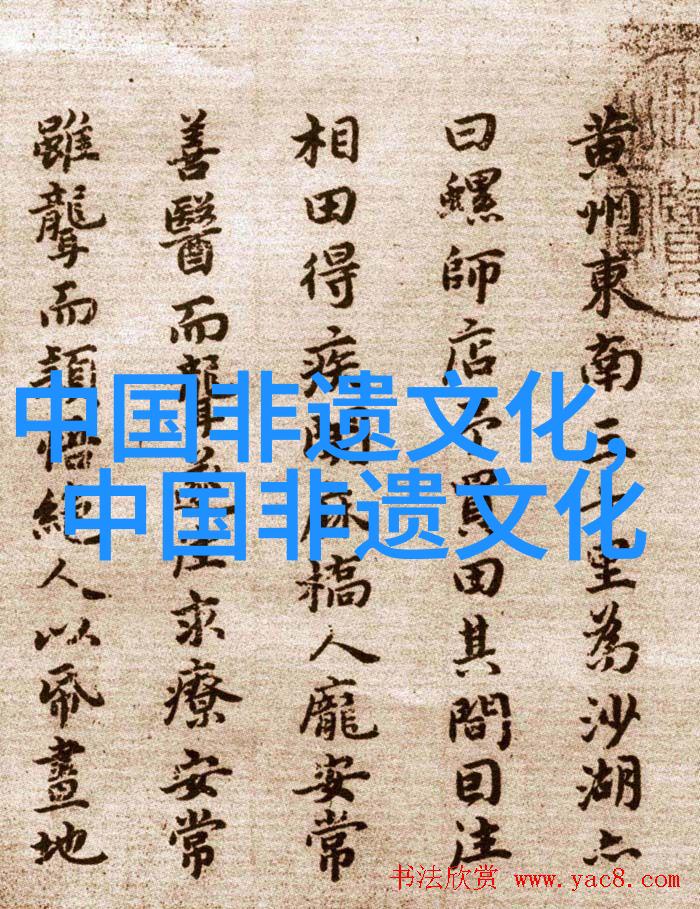 黄州東南三十里為沙湖亦
曰螺師店予買田其間因往
相田得疾聞麻橋人龐安常
善醫而聾遂往求療安常
雖聾而穎悟絕人以紙畫地
中国非遗文化,
中国非遗文化
书法欣赏 www.yac8.com